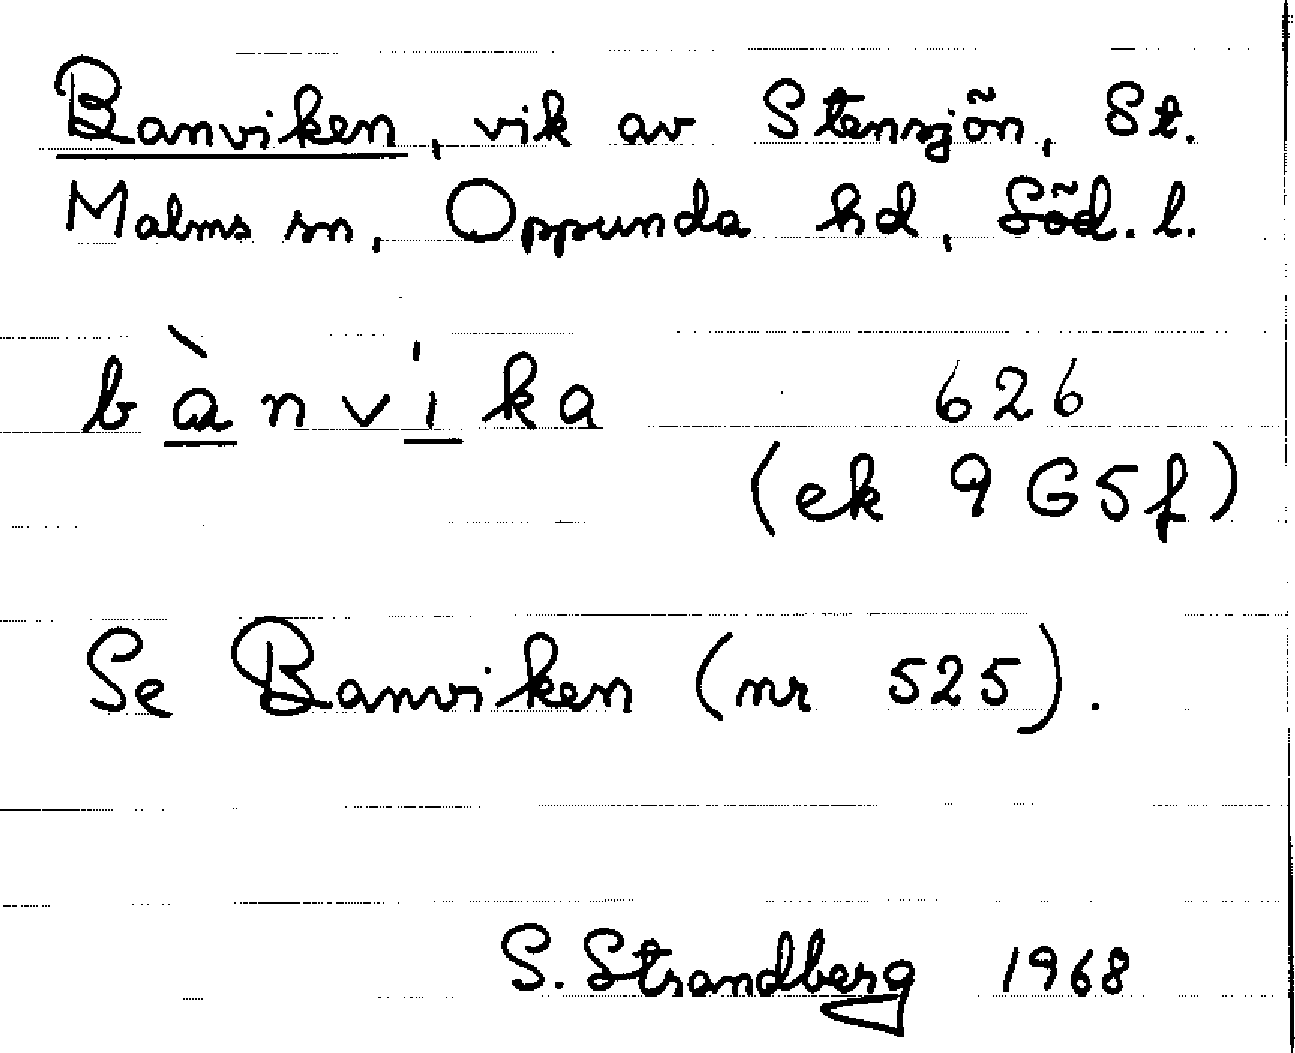 Banviken, vik av Stensjön, St.
Malms sn, Oppunda hd, Söd. l.
bànvika 626
(ek 9G5f)
Se Banviken (nr 525).
S. Strandberg 1968